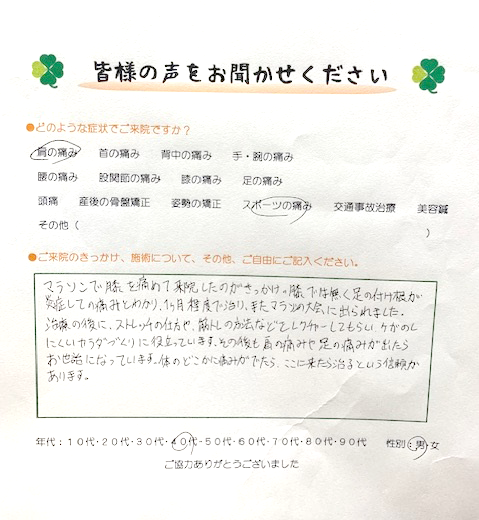 皆様の声をお聞かせください
●どのような症状でご来院ですか？
肩の痛み　首の痛み　背中の痛み　手・腕の痛み
腰の痛み　股関節の痛み　膝の痛み　足の痛み
頭痛　産後の骨盤矯正　姿勢の矯正　スポーツの痛み　交通事故治療　美容鍼
その他（　　　）
●ご来院のきっかけ、施術について、その他、ご自由にご記入ください。
マラソンで膝を痛めて来院したのがきっかけ。膝では無く足の付け根が
炎症しての痛みとわかり、1ヶ月程度で治り、またマラソン大会に出られました。
治療の後に、ストレッチの仕方や、筋トレの方法などをレクチャーしてもらい ケガのし
にくいカラダづくりに役立っています。その後も肩の痛みや足の痛みが出たら
お世話になっています。体のどこかに痛みがでたら、ここに来たら治るという信頼が
あります。
年代：10代・20代・30代・40代・50代・60代・70代・80代・90代　性別：男・女
ご協力ありがとうございました